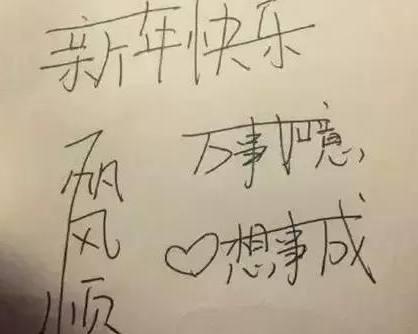 新年快乐
万事如意,
♡想事成
一帆风顺